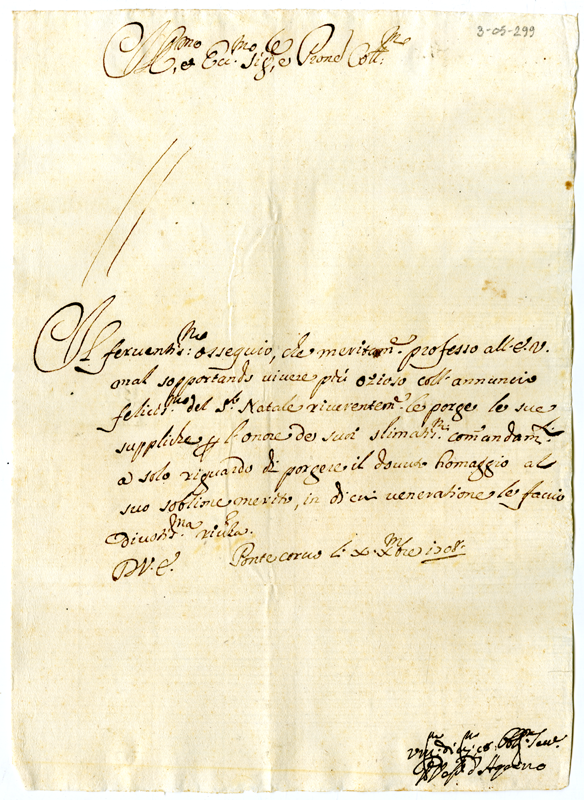 3-05-299
Ill.mo, et Ecc.mo Sig.e, e Prone Coll.mo
Il ferventis.mo ossequio, che meritam.e professo all'E.V.
mal sopportando vivere più ozioso coll'annuncio
felicis.mo del S.to Natale riverentem.e le porge le sue
suppliche l'onore de suoi stimatis.mi comandam.ti
a solo riguardo di porgere il dovuto homaggio al
suo soblime merito, in di cui veneratione le faccio
divotis.ma riv.za.
D.V.E. Ponte corvo li x Xbre 1708.
d'Aquino